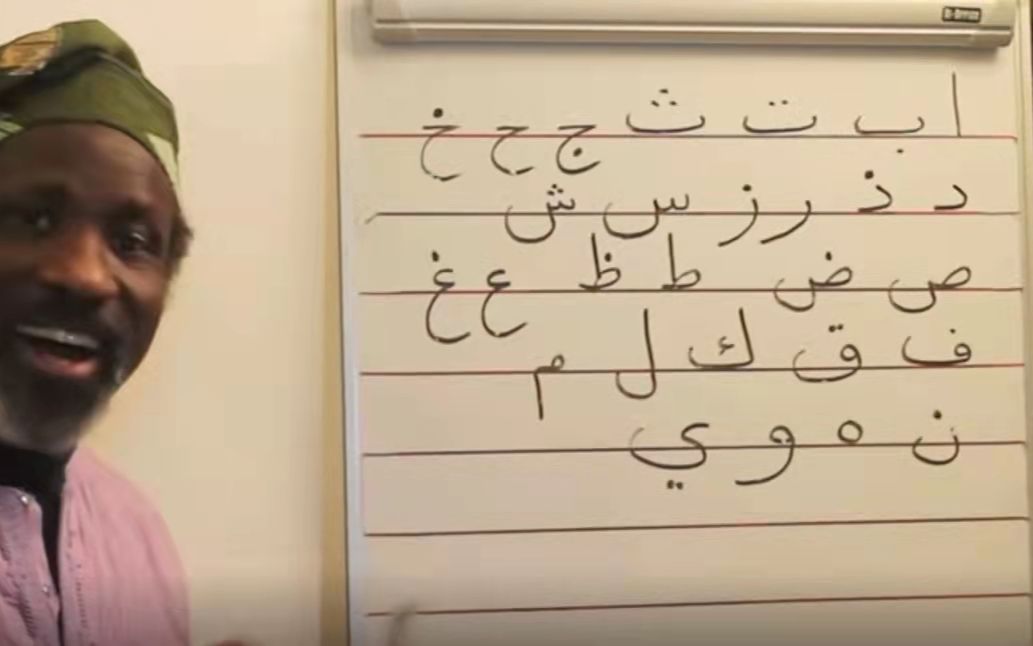 ا ب ت ث ج ح خ
د ذ ر ز س ش
ص ض ط ظ ع غ
ف ق ك ل م
ن ه و ي